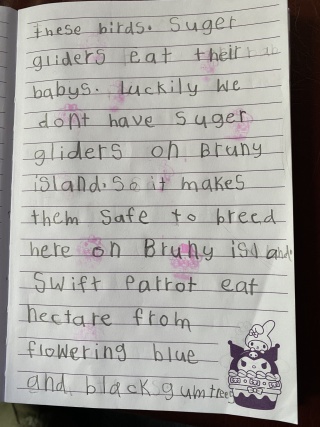 these birds. Suger
gliders eat their
babys. Luckily we
dont have Suger
gliders on Bruny
island. So it makes
them safe to breed
here on Bruny island
Swift Parrot eat
hectare from
flowering blue
and black gumtrees